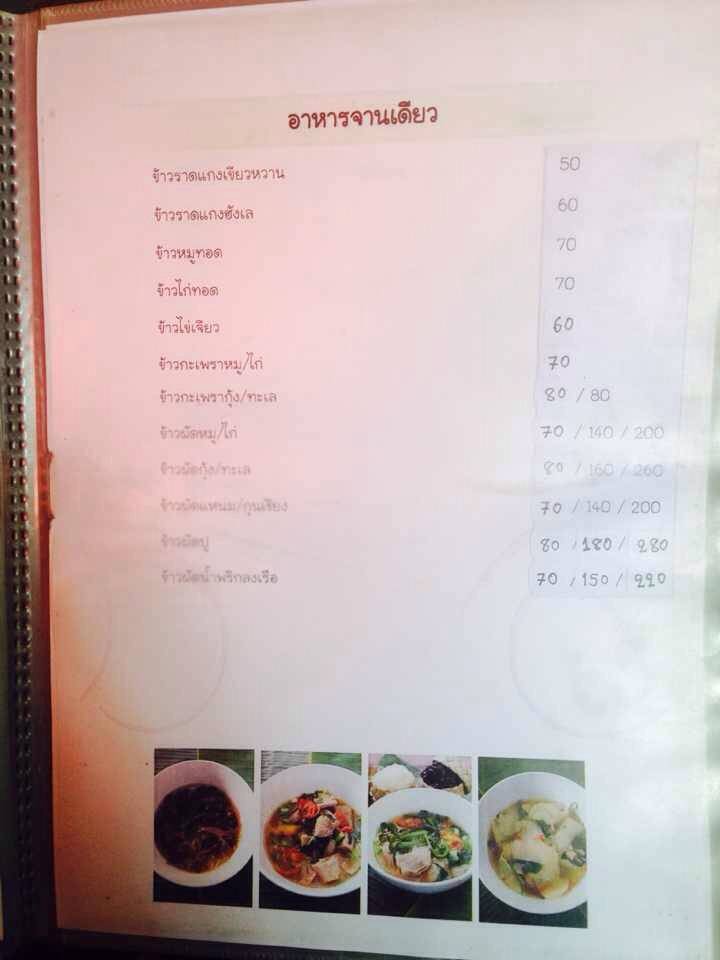 อาหารจานเดียว
ข้าวราดแกงเขียวหวาน 50
ข้าวราดแกงฮังเล 60
ข้าวหมูทอด 70
ข้าวไก่ทอด 70
ข้าวไข่เจียว 60
ข้าวกะเพราหมู/ไก่ 70
ข้าวกะเพรากุ้ง/ทะเล 80 / 80
ข้าวผัดหมู/ไก่ 70 / 140 / 200
ข้าวผัดกุ้ง/ทะเล 80 / 160 / 260
ข้าวผัดแหนม/กุนเชียง 70 / 140 / 200
ข้าวผัดปู 80 / 180 / 280
ข้าวผัดน้ำพริกลงเรือ 70 / 150 / 220